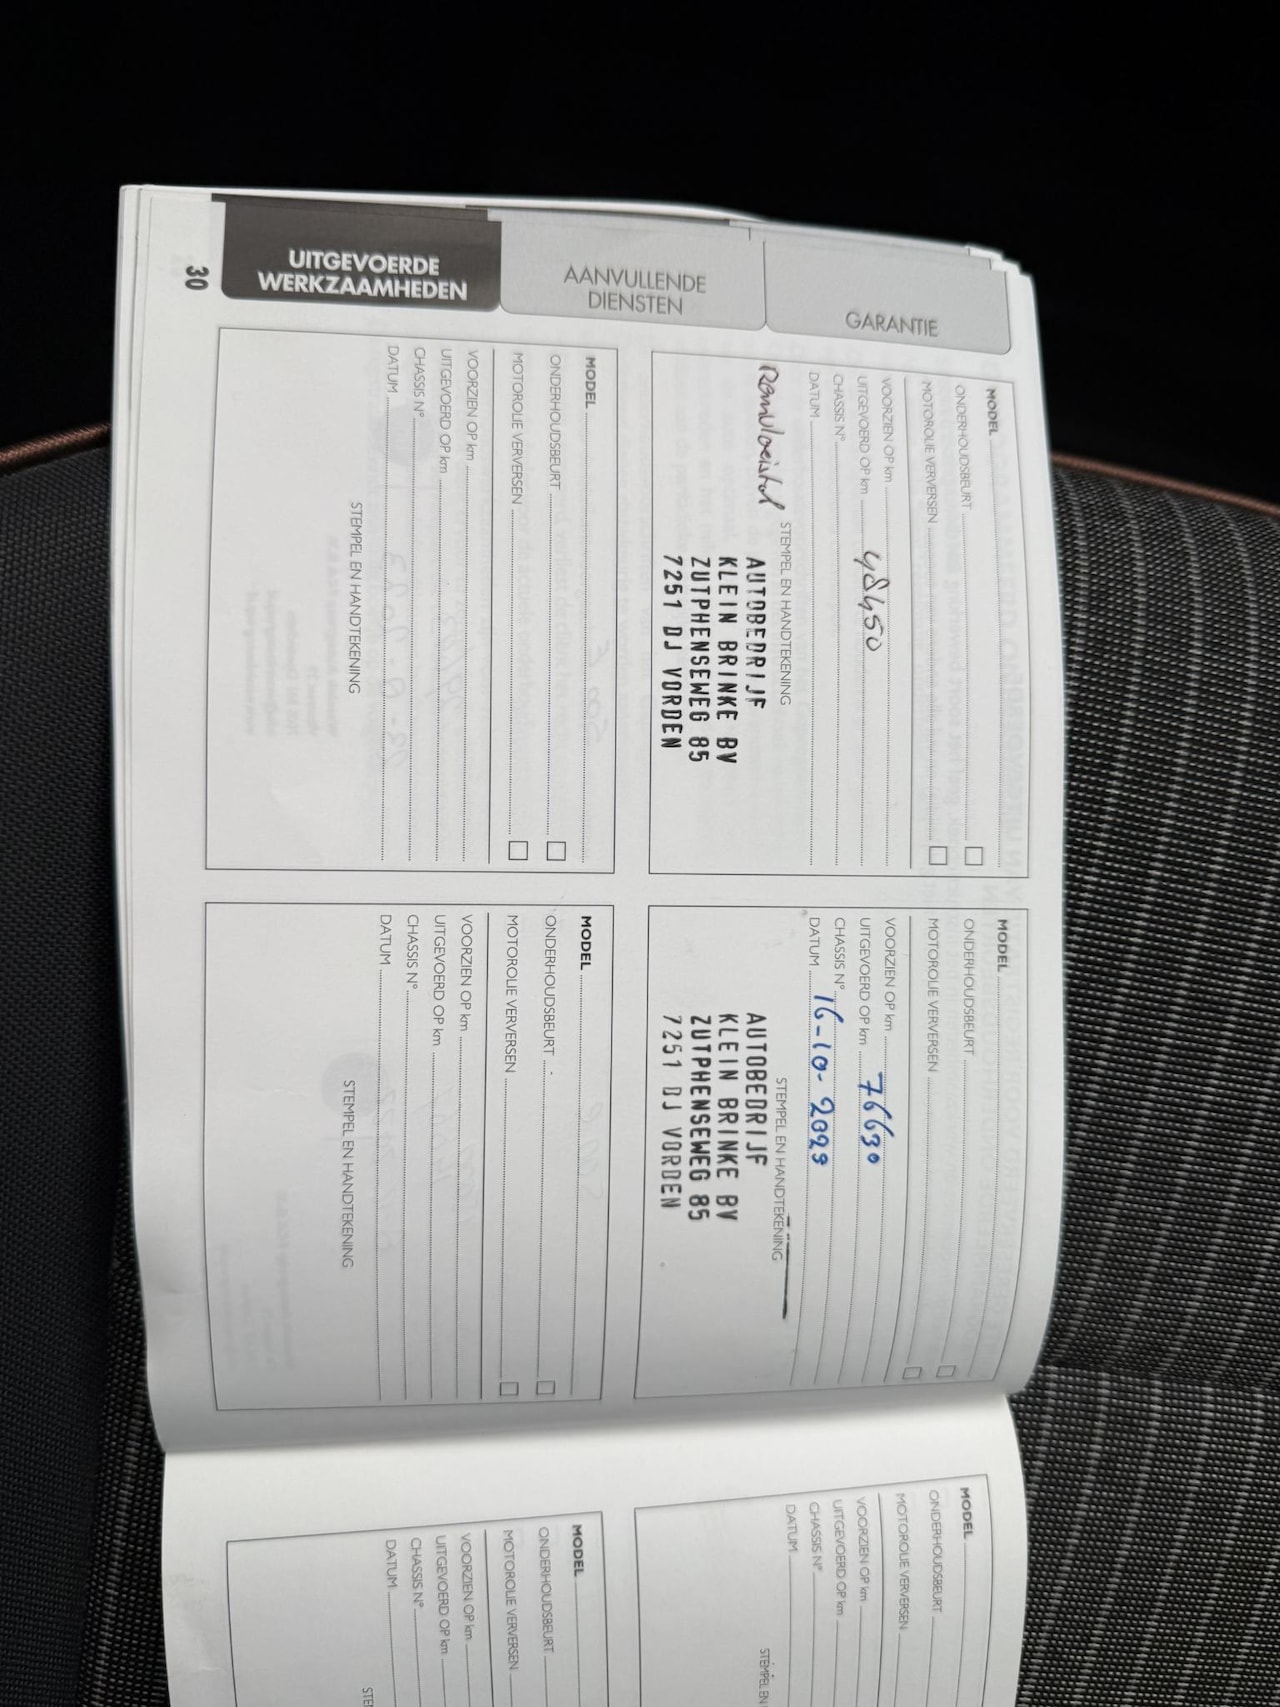 30
UITGEVOERDE
WERKZAAMHEDEN
AANVULLENDE
DIENSTEN
GARANTIE
MODEL
ONDERHOUDSBEURT
MOTOROLIE VERVERSEN
VOORZIEN OP km
UITGEVOERD OP km 48450
CHASSIS N°
DATUM
STEMPEL EN HANDTEKENING
Remvloeistof
AUTOBEDRIJF
KLEIN BRINKE BV
ZUTPHENSEWEG 85
7251 DJ VORDEN
MODEL
ONDERHOUDSBEURT
MOTOROLIE VERVERSEN
VOORZIEN OP km
UITGEVOERD OP km 76630
CHASSIS N°
DATUM 16-10-2023
STEMPEL EN HANDTEKENING
AUTOBEDRIJF
KLEIN BRINKE BV
ZUTPHENSEWEG 85
7251 DJ VORDEN
MODEL
ONDERHOUDSBEURT
MOTOROLIE VERVERSEN
VOORZIEN OP km
UITGEVOERD OP km
CHASSIS N°
DATUM
STEMPEL EN HANDTEKENING
MODEL
ONDERHOUDSBEURT
MOTOROLIE VERVERSEN
VOORZIEN OP km
UITGEVOERD OP km
CHASSIS N°
DATUM
STEMPEL EN HANDTEKENING
MODEL
ONDERHOUDSBEURT
MOTOROLIE VERVERSEN
VOORZIEN OP km
UITGEVOERD OP km
CHASSIS N°
DATUM
STEMPEL EN
MODEL
ONDERHOUDSBEURT
MOTOROLIE VERVERSEN
VOORZIEN OP km
UITGEVOERD OP km
CHASSIS N°
DATUM